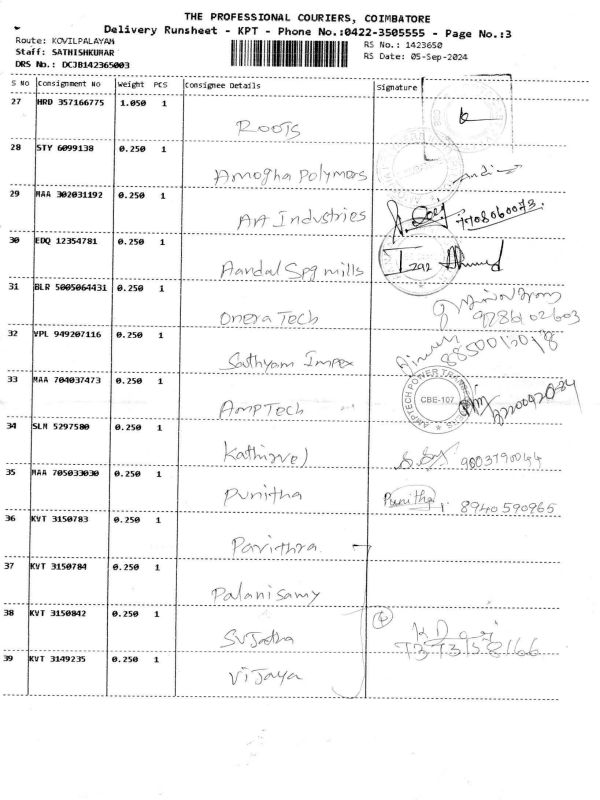 THE PROFESSIONAL COURIERS, COIMBATORE
Delivery Runsheet - KPT - Phone No.:0422-3505555 - Page No.:3
Route: KOVILPALAYAM
RS No.: 1423650
Staff: SATHISHKUMAR
RS Date: 05-Sep-2024
DRS No.: DCJB142365003
S NO Consignment No Weight PCS Consignee Details Signature
27 HRD 357166775 1.050 1
ROOTS
28 STY 6099138 0.250 1
Amogha Polymers
29 MAA 302031192 0.250 1
Art Industries
30 EDQ 12354781 0.250 1
Aandal Spg mills
31 BLR 5005064431 0.250 1
Onera Tech
32 VPL 949207116 0.250 1
Sathyam Impex
33 MAA 704037473 0.250 1
AMPTECH
CBE-107
34 SLM 5297580 0.250 1
Kathirvel 9003790044
35 MAA 705033030 0.250 1
Punitha Punitha 8940590965
36 KVT 3150783 0.250 1
Pavithra
37 KVT 3150784 0.250 1
Palanisamy
38 KVT 3150842 0.250 1
Sujatha 7373158166
39 KVT 3149235 0.250 1
Vijaya